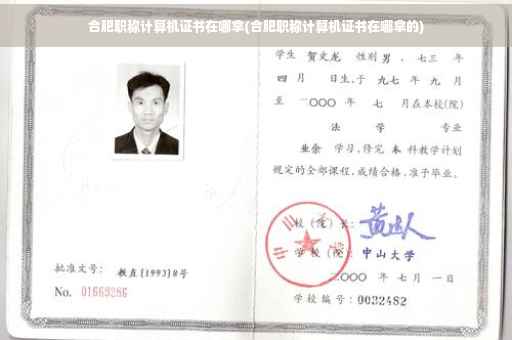 合肥职称计算机证书在哪拿(合肥职称计算机证书在哪拿的)
学生 贺文龙 性别 男 、七三 年
四 月 日生,于 九七 年 九 月
至 二〇〇〇 年 七 月在本校(院)
法 学 专业
业余 学习,修完 本 科教学计划
规定的全部课程,成绩合格,准予毕业。
校(院)长:
学校(院): 中山大学
二〇〇〇 年 七 月 一 日
学校编号: 0032482
批准文号: 教直(1993)8号
No. 01669286